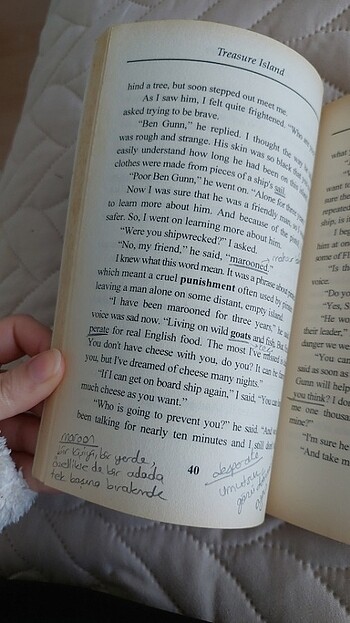 Treasure Island
hind a tree, but soon stepped out meet me.
As I saw him, I felt quite frightened. "Who are
asked trying to be brave.
"Ben Gunn," he replied. I thought the way he
was rough and strange. His skin was so black that
easily understand how long he had been on this
clothes were made from pieces of a ship's sail.
"Poor Ben Gunn," he went on. "Alone for three years
Now I was sure that he was a friendly man, so I
to learn more about him. And because of the
safer. So, I went on learning more about him.
"Were you shipwrecked?" I asked.
"No, my friend," he said, "marooned."
I knew what this word mean. It was a phrase about
which meant a cruel punishment often used by pirates
leaving a man alone on some distant, empty island.
"I have been marooned for three years," he said
voice was sad now. "Living on wild goats and fish. But
perate for real English food. The most I've missed
You don't have cheese with you, do you? It can be
you, but I've dreamed of cheese many nights."
"If I can get on board ship again," I said, "You can
much cheese as you want."
"Who is going to prevent you?" he said. "And we
been talking for nearly ten minutes and I still don't
40
maroon
bir kişiyi bir yerde,
özellikle de bir adada
tek başına bırakmak
desperate
what
want to
sure the
repeated
ship, is i
I beg
him at on
some of Fl
"Is tha
voice.
"Do yo
"Yes, S
"He wo
their leader,"
danger we w
"You can
said as soon as
Gunn will help
you think? I don
me one thousa
mine?"
"I'm sure he
"And take m